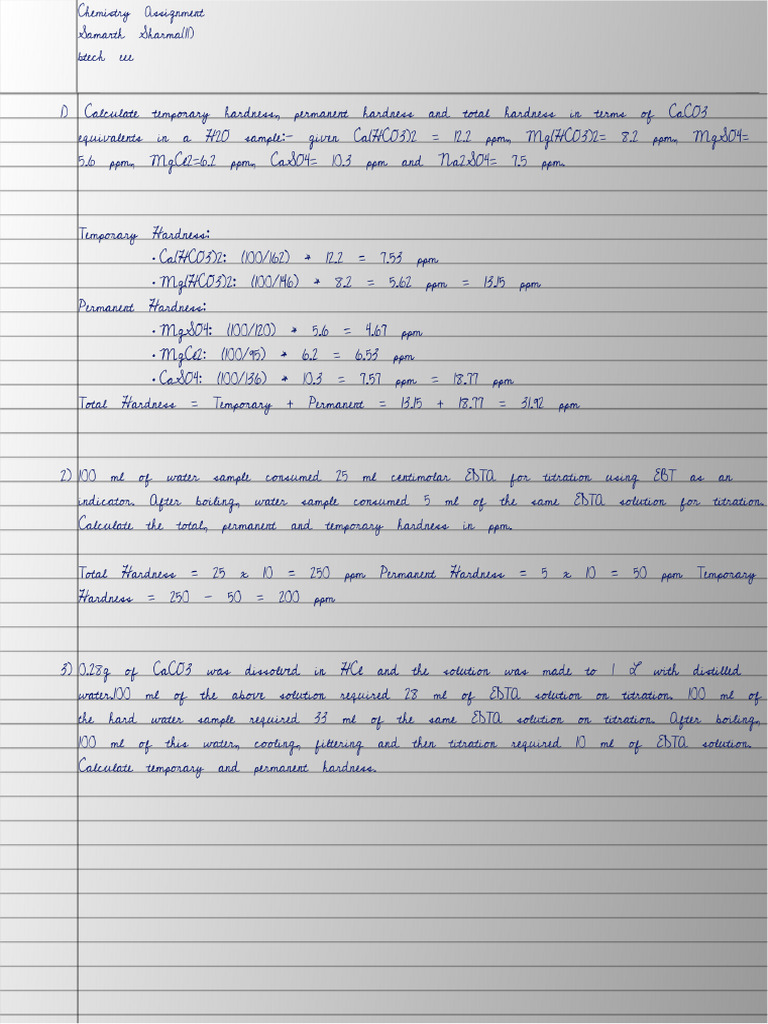 Chemistry Assignment
Samarth Sharma(11)
btech eee
1) Calculate temporary hardness, permanent hardness and total hardness in terms of CaCO3
equivalents in a H2O sample:- given Ca(HCO3)2 = 12.2 ppm, Mg(HCO3)2= 8.2 ppm, MgSO4=
5.6 ppm, MgCl2=6.2 ppm, CaSO4= 10.3 ppm and Na2SO4= 7.5 ppm.
Temporary Hardness:
• Ca(HCO3)2: (100/162) * 12.2 = 7.53 ppm
• Mg(HCO3)2: (100/146) * 8.2 = 5.62 ppm = 13.15 ppm
Permanent Hardness:
• MgSO4: (100/120) * 5.6 = 4.67 ppm
• MgCl2: (100/95) * 6.2 = 6.53 ppm
• CaSO4: (100/136) * 10.3 = 7.57 ppm = 18.77 ppm
Total Hardness = Temporary + Permanent = 13.15 + 18.77 = 31.92 ppm
2) 100 ml of water sample consumed 25 ml centimolar EDTA for titration using EBT as an
indicator. After boiling, water sample consumed 5 ml of the same EDTA solution for titration.
Calculate the total, permanent and temporary hardness in ppm.
Total Hardness = 25 x 10 = 250 ppm Permanent Hardness = 5 x 10 = 50 ppm Temporary
Hardness = 250 - 50 = 200 ppm
3) 0.28g of CaCO3 was dissolved in HCl and the solution was made to 1 L with distilled
water.100 ml of the above solution required 28 ml of EDTA solution on titration. 100 ml of
the hard water sample required 33 ml of the same EDTA solution on titration. After boiling,
100 ml of this water, cooling, filtering and then titration required 10 ml of EDTA solution.
Calculate temporary and permanent hardness.